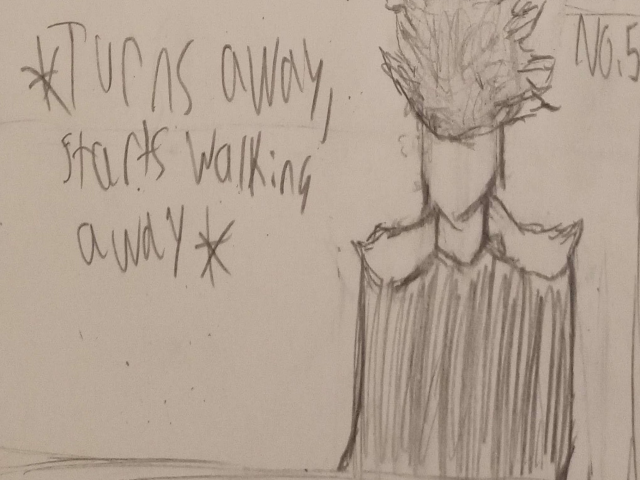 *Turns away,
starts walking
away*
No.5